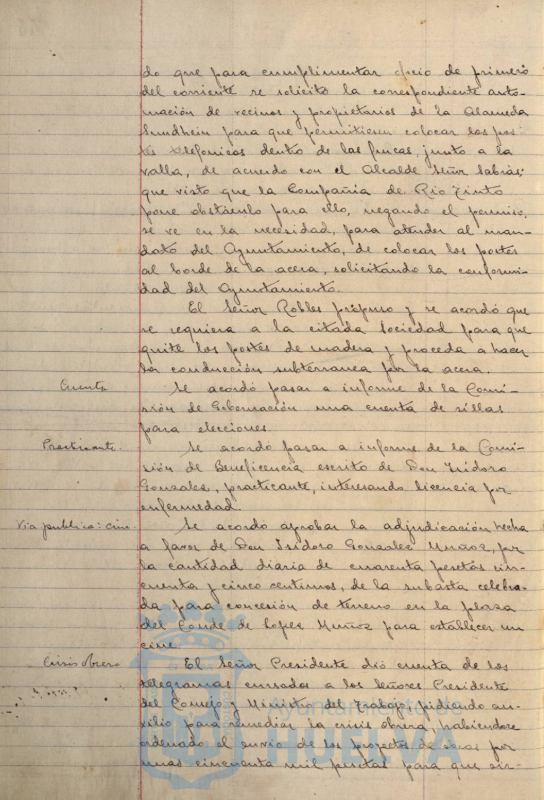 do que para cumplimentar oficio de primero
del corriente se solicitó la correspondiente auto-
rización de vecinos y propietarios de la Alameda
Sundhein para que permitiesen colocar los pos-
tes telefonicos dentro de las fincas, junto a la
valla, de acuerdo con el Alcalde Señor Sabrás:
que visto que la Compañia de Rio Tinto
pone obstáculo para ello, negando el permiso,
se ve en la necesidad, para atender al man-
dato del Ayuntamiento, de colocar los postes
al borde de la acera, solicitando la conformi-
dad del Ayuntamiento.
El Señor Robles propuso y se acordó que
se requiera a la citada Sociedad para que
quite los postes de madera y proceda a hacer
la conducción subterranea por la acera.
Cuenta Se acordó pasar a informe de la Comi-
sión de Gobernación una cuenta de sillas
para elecciones.
Practicante. Se acordó pasar a informe de la Comi-
sión de Beneficencia escrito de Don Isidoro
Gonzalez, practicante, interesando licencia por
enfermedad.
Via publica: cine. Se acordó aprobar la adjudicación hecha
a favor de Don Isidoro Gonzalez Muñoz, por
la cantidad diaria de cuarenta pesetas cin-
cuenta y cinco centimos, de la subasta celebra-
da para concesión de terreno en la plaza
del Conde de Lopez Muñoz para establecer un
cine.
Crisis obrera El Señor Presidente dió cuenta de los
telegramas cursados a los Señores Presidente
del Consejo y Ministro del Trabajo, pidiendo au-
xilio para remediar la crisis obrera, habiendose
ordenado el envio de los proyectos de obras por
unas cincuenta mil pesetas para que sir-
Ayuntamiento de
HUELVA